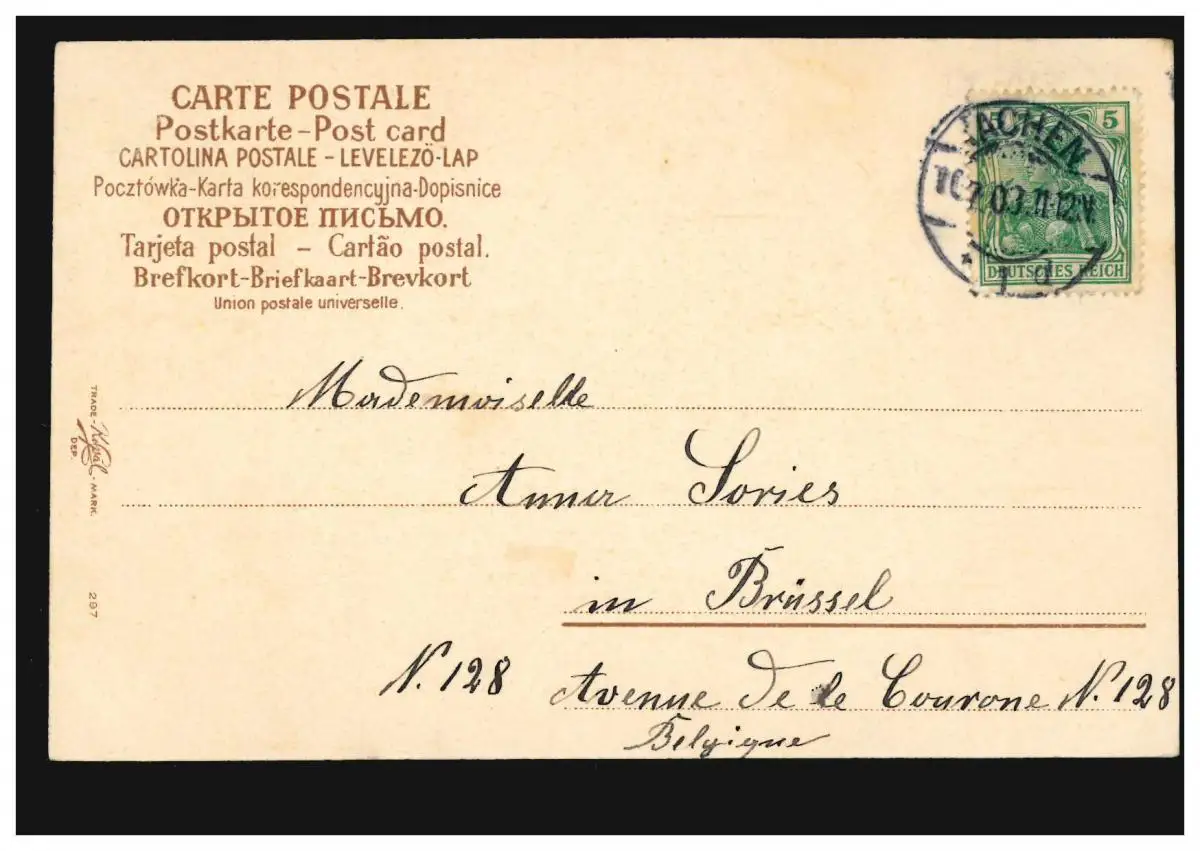 CARTE POSTALE
Postkarte-Post card
CARTOLINA POSTALE - LEVELEZŐ-LAP
Pocztówka-Karta korespondencyjna-Dopisnice
ОТКРЫТОЕ ПИСЬМО.
Tarjeta postal - Cartão postal.
Brefkort-Briefkaart-Brevkort
Union postale universelle.
5
AACHEN
11-12V
* 1 d
DEUTSCHES REICH
TRADE-
-MARK.
DEP.
297
Mademoiselle
Anna Sories
in Brüssel
N. 128
Avenue de le Courone N. 128
Belgique